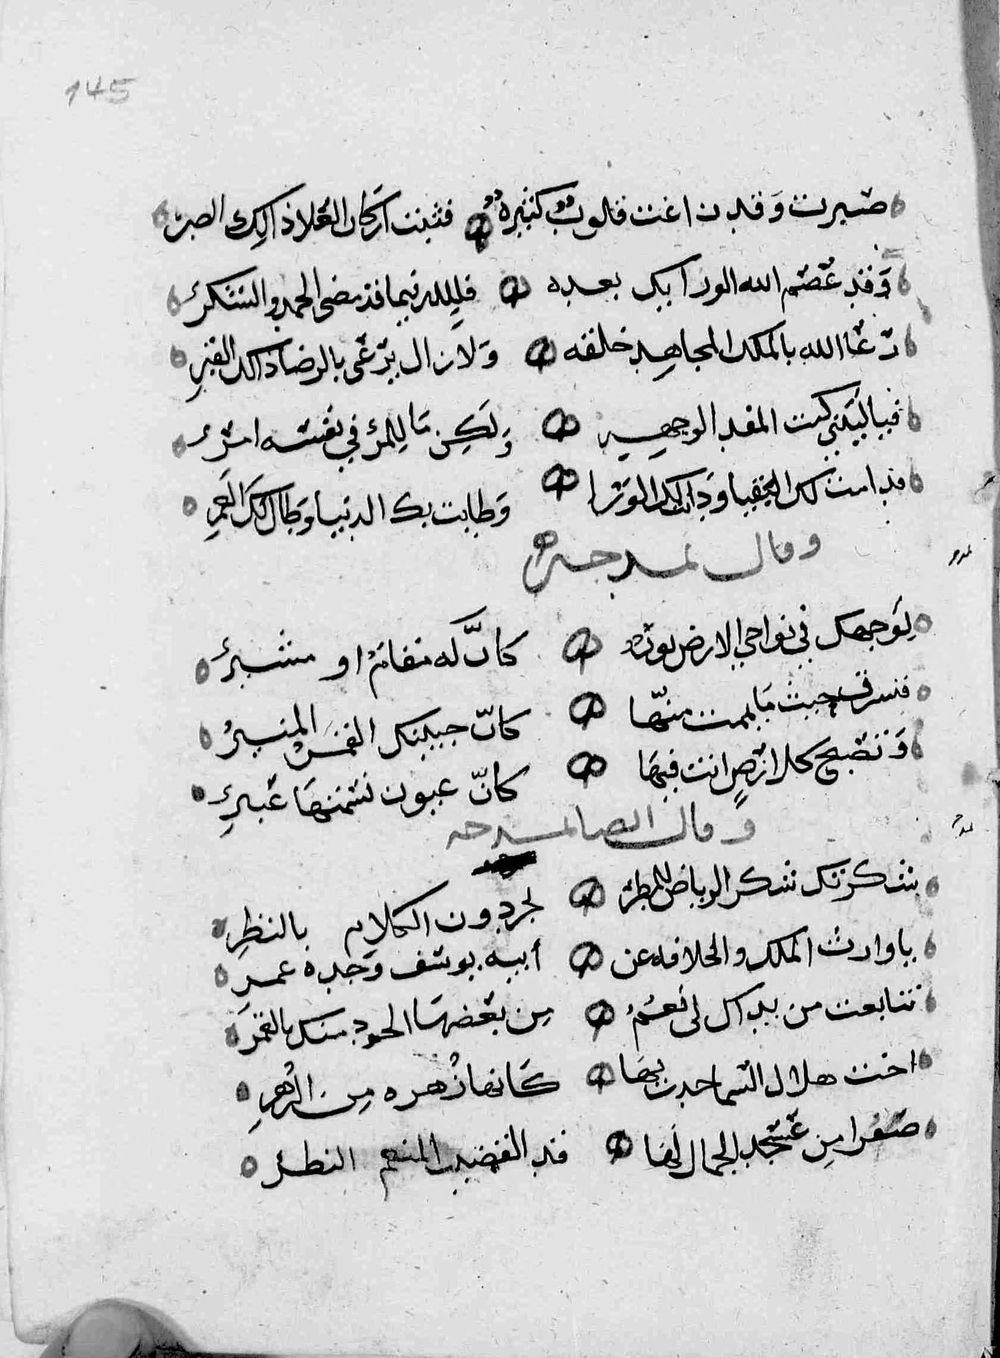 145
صبرت وقد زاغت قلوب كثيرة فثبت اركان العلا ذالك الصبر
وقد عصم الله الورا بك بعده فلله فيما قد مضى الحمد والشكر
رعا الله بالملك المجاهد خلقه ولا زال يرعى بالرضا ذالك القبر
فيا ليتني كنت المفدا لوجهه ولكن ما للمرء في نفسه امر
فدامت لك العقبا ودان لك الورا وطابت بك الدنيا وطال لك العمر
وقال يمدحه
لوجهك في نواحي الارض نور كان له مقابر او مشير
فتشرق حيث ما يممت منها كان جبينك القمر المنير
وتصبح كل ارض انت فيها كان عيون نشمنها عبير
وقال ايضا يمدحه
شكرتك شكر الرياض للمطر لجرد ون الكلام بالنظر
يا وارث الملك والخلافه عن أبيه يوسف وجده عمر
تتابعت من يديك لي نعم من بعضها الجود منك بالقمر
اخت هلال السما جدت بها كانها زهره من الزهر
صفرا من عسجد الجمال لها قد القضيب المنعم النضر